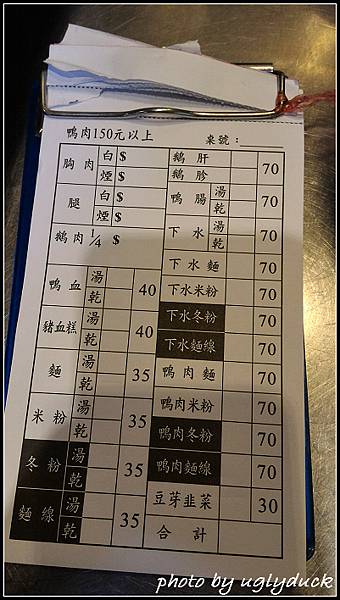 鴨肉150元以上 桌號：
胸肉 白 $
煙 $
腿 白 $
煙 $
鵝肉 1/4 $
鴨血 湯 乾 40
豬血糕 湯 乾 40
麵 湯 乾 35
米粉 湯 乾 35
冬粉 湯 乾 35
麵線 湯 乾 35
鵝肝 鵝胗 70
鴨腸 湯 乾 70
下水 湯 乾 70
下水麵 70
下水米粉 70
下水冬粉 70
下水麵線 70
鴨肉麵 70
鴨肉米粉 70
鴨肉冬粉 70
鴨肉麵線 70
豆芽韭菜 30
合計
photo by uglyduck